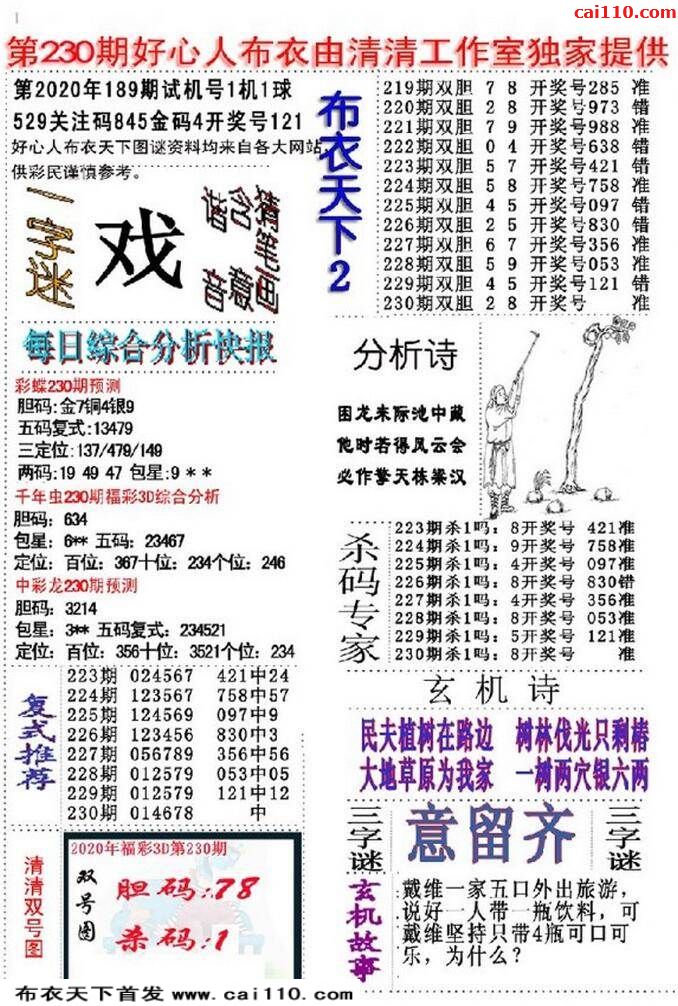 cai110.com
第230期好心人布衣由清清工作室独家提供
第2020年189期试机号1机1球
529关注码845金码4开奖号121
好心人布衣天下图谜资料均来自各大网站,
供彩民谨慎参考。
一字迷
戏
猜笔画
含意
谐音
布衣天下2
219期双胆 7 8 开奖号285 准
220期双胆 2 8 开奖号973 错
221期双胆 7 9 开奖号988 准
222期双胆 0 4 开奖号638 错
223期双胆 5 7 开奖号421 错
224期双胆 5 8 开奖号758 准
225期双胆 4 5 开奖号097 错
226期双胆 2 5 开奖号830 错
227期双胆 6 7 开奖号356 准
228期双胆 5 9 开奖号053 准
229期双胆 4 5 开奖号121 错
230期双胆 2 8 开奖号 准
每日综合分析快报
彩蝶230期预测
胆码:金7铜4银9
五码复式:13479
三定位:137/479/149
两码:19 49 47 包星:9 * *
千年虫230期福彩3D综合分析
胆码：634
包星：6** 五码：23467
定位：百位：367十位：234个位：246
中彩龙230期预测
胆码：3214
包星：3** 五码复式：234521
定位：百位：356十位：3521个位：234
分析诗
困龙未际池中藏
他时若得风云会
必作擎天栋梁汉
杀码专家
223期杀1吗：8开奖号 421准
224期杀1吗：9开奖号 758准
225期杀1吗：4开奖号 097准
226期杀1吗：8开奖号 830错
227期杀1吗：4开奖号 356准
228期杀1吗：8开奖号 053准
229期杀1吗：5开奖号 121准
230期杀1吗：8开奖号 准
复式推荐
223期 024567 421中24
224期 123567 758中57
225期 124569 097中9
226期 123456 830中3
227期 056789 356中56
228期 012579 053中05
229期 012579 121中12
230期 014678 中
玄机诗
民夫植树在路边 树林伐光只剩椿
大地草原为我家 一树两穴银六两
三字谜
意留齐
三字谜
清清双号图
2020年福彩3D第230期
双号图
胆码:78
杀码:1
玄机故事
戴维一家五口外出旅游，
说好一人带一瓶饮料，可
戴维坚持只带4瓶可口可
乐，为什么？
布衣天下首发 www.cai110.com